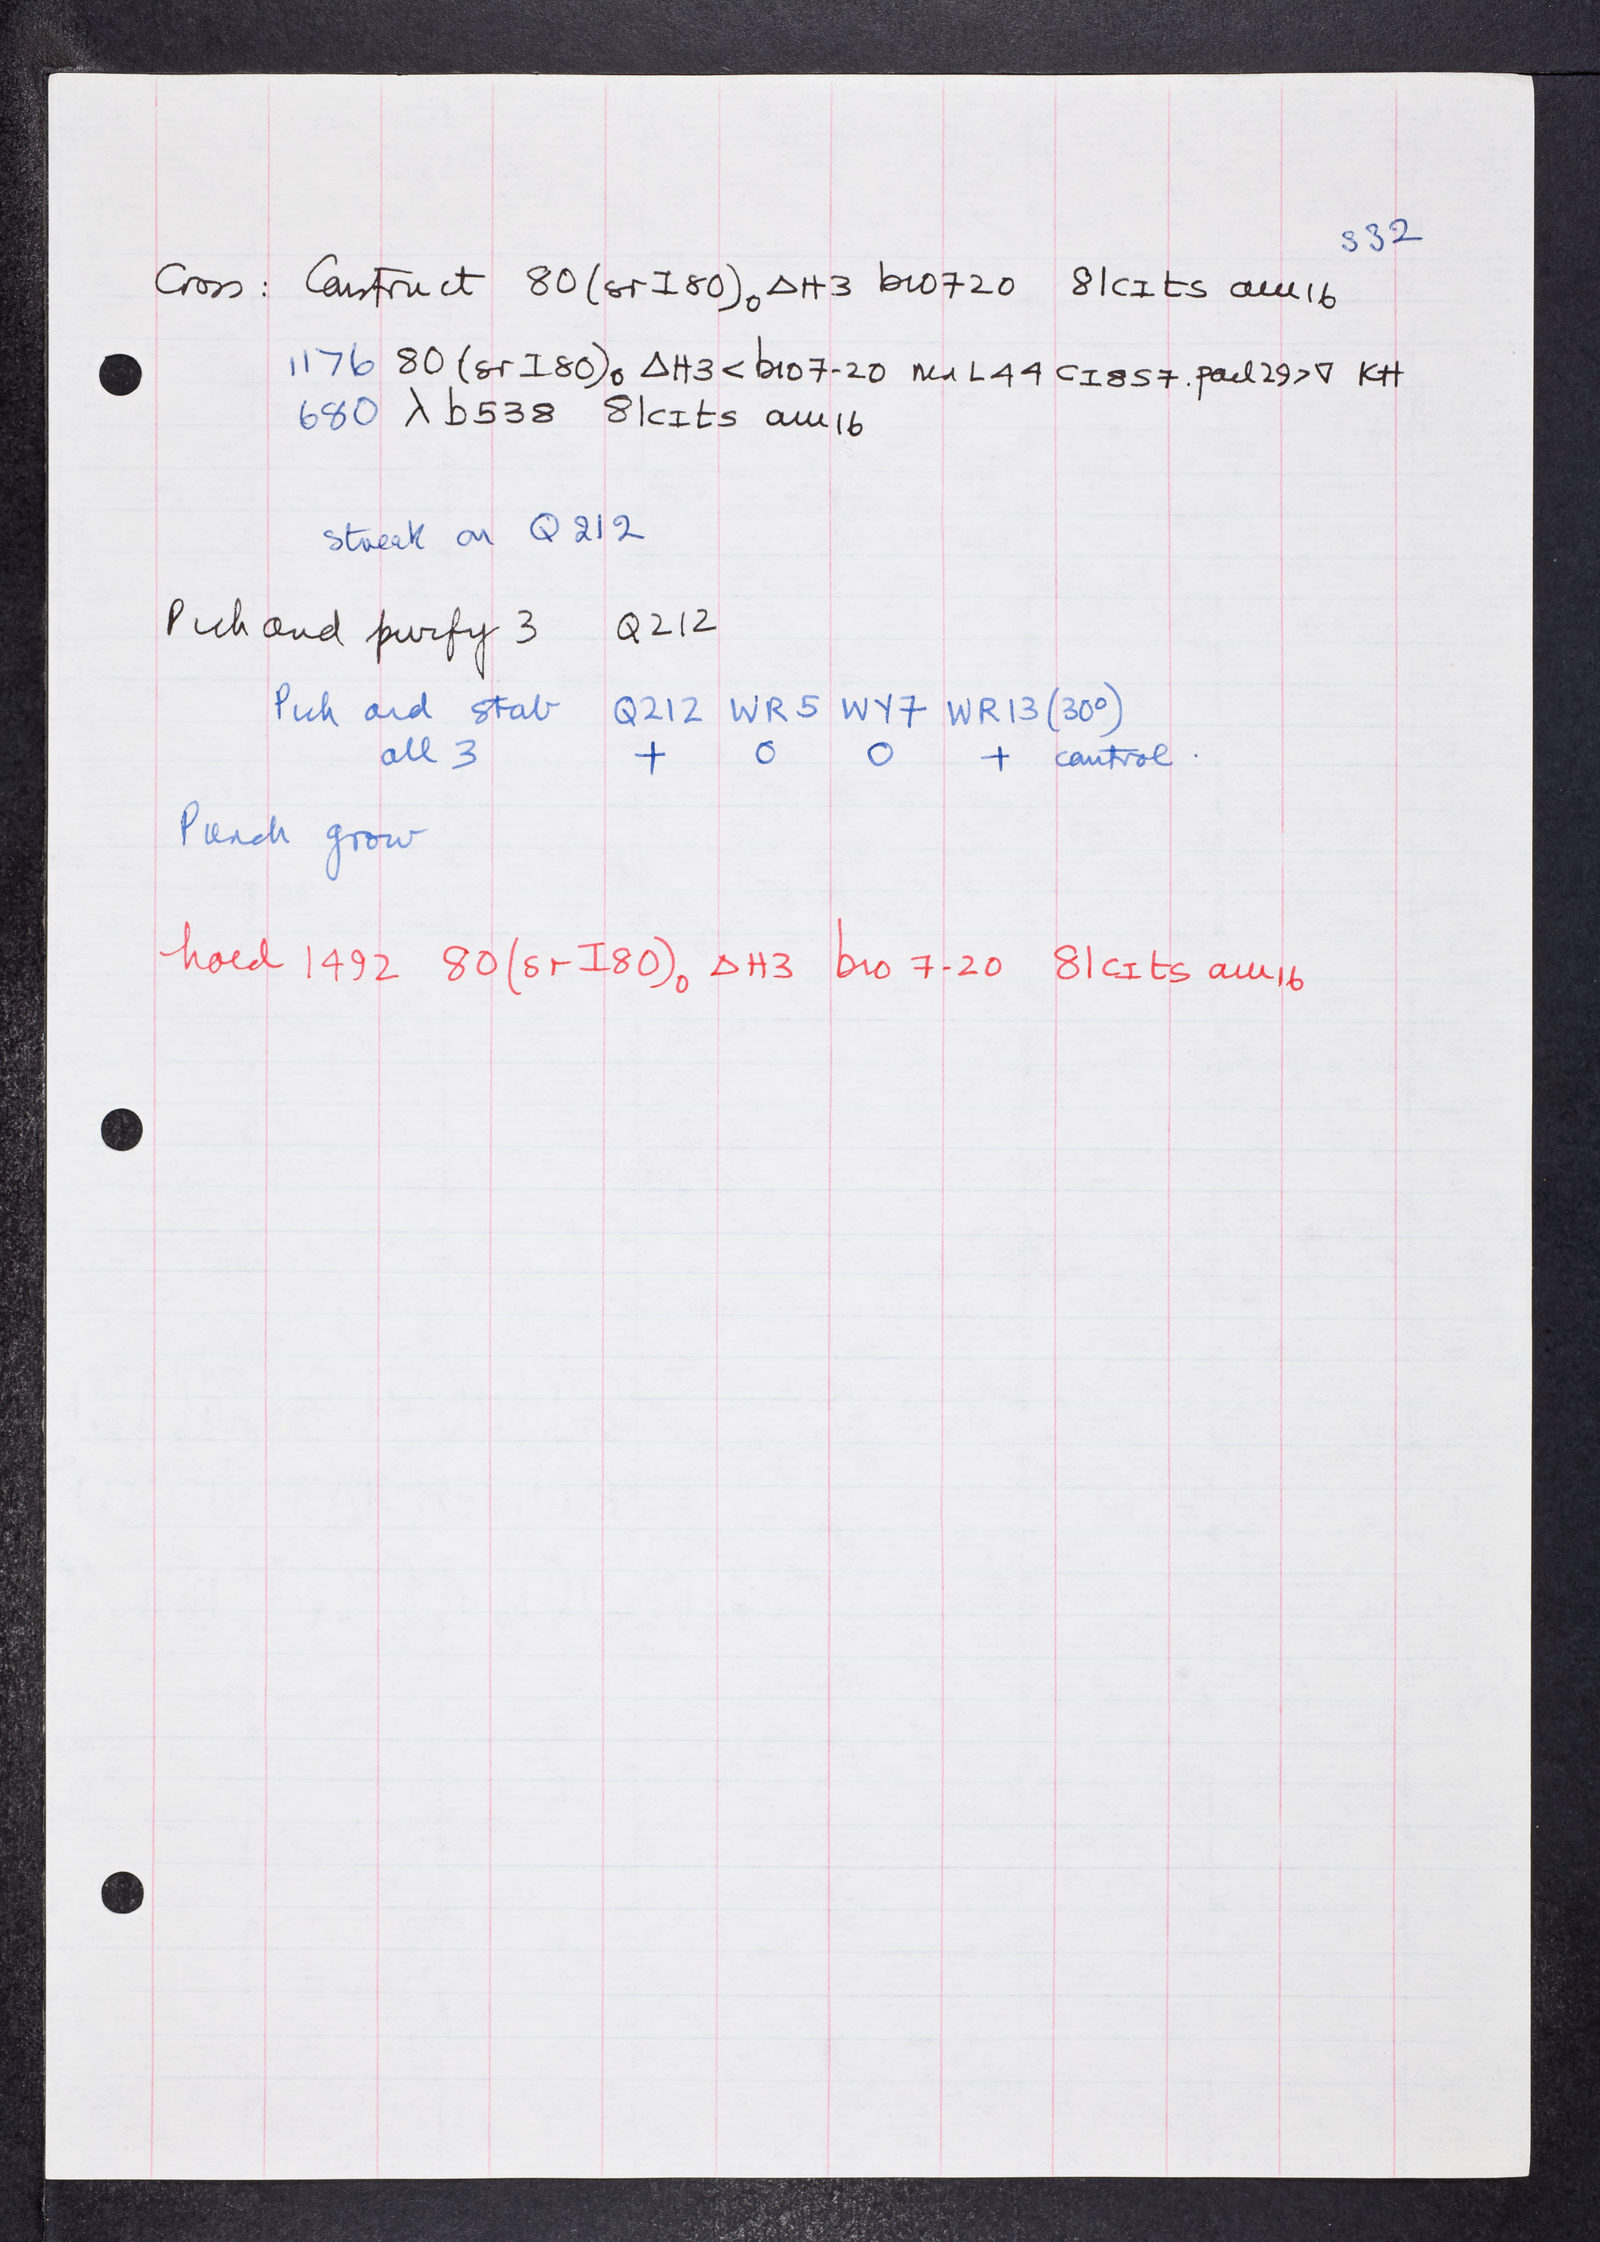 S32
Cross: Construct 80(srI80)₀ ΔH3 bio720 81cIts am16
1176 80(srI80)₀ ΔH3<bio7-20 ninL44 cI857.pael29>∇ KH
680 λ b538 81cIts am16
streak on Q212
Pick and purify 3 Q212
Pick and stab Q212 WR5 WY7 WR13(30°)
all 3 + 0 0 + control.
Punch grow
hoed 1492 80(srI80)₀ ΔH3 bio 7-20 81cIts am16